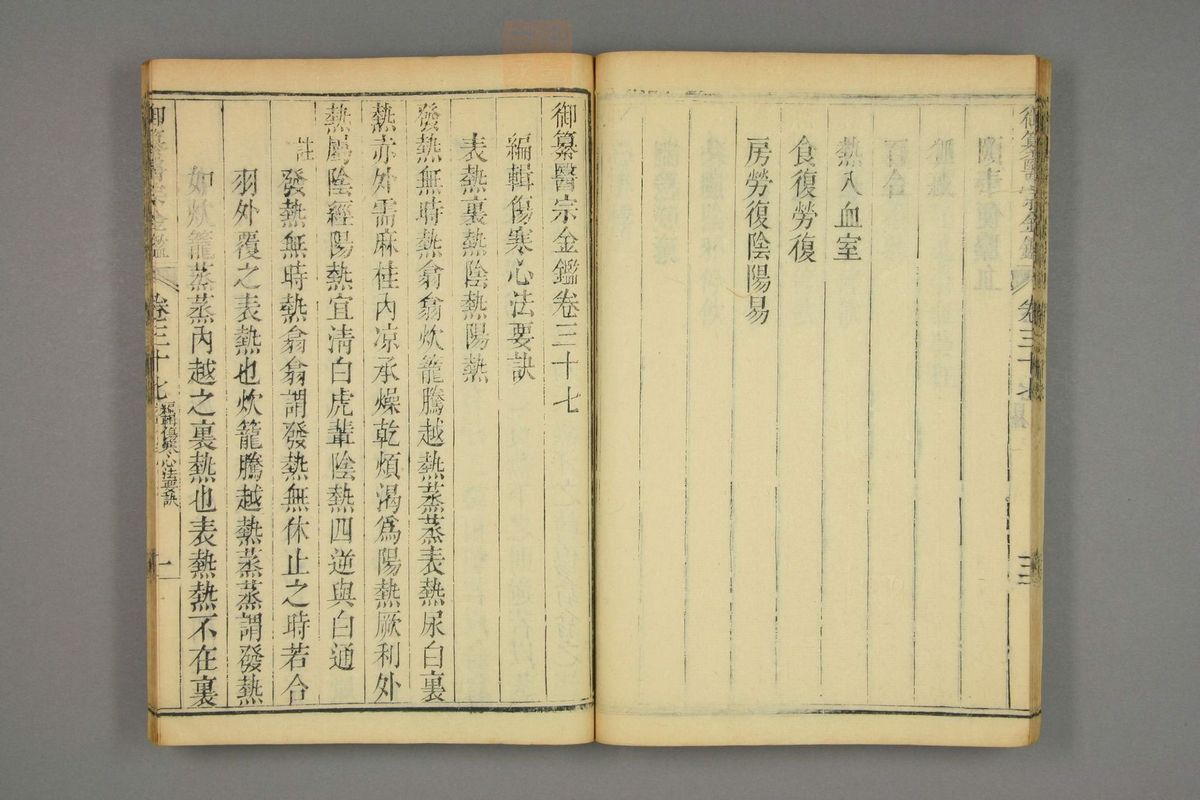 熱入血室
食復勞復
房勞復陰陽易
御纂醫宗金鑑卷三十七
編輯傷寒心法要訣
表熱裏熱陰熱陽熱
發熱無時熱翕翕炊籠騰越熱蒸蒸表熱尿白裏
熱赤外需麻桂內凉承燥乾煩渴爲陽熱厥利外
熱屬陰經陽熱宜淸白虎輩陰熱四逆與白通
註發熱無時熱翕翕謂發熱無休止之時若合
羽外覆之表熱也炊籠騰越熱蒸蒸謂發熱
如炊籠蒸蒸內越之裏熱也表熱熱不在裏
御纂醫宗金鑑 卷三十七 編輯傷寒心法要訣 一